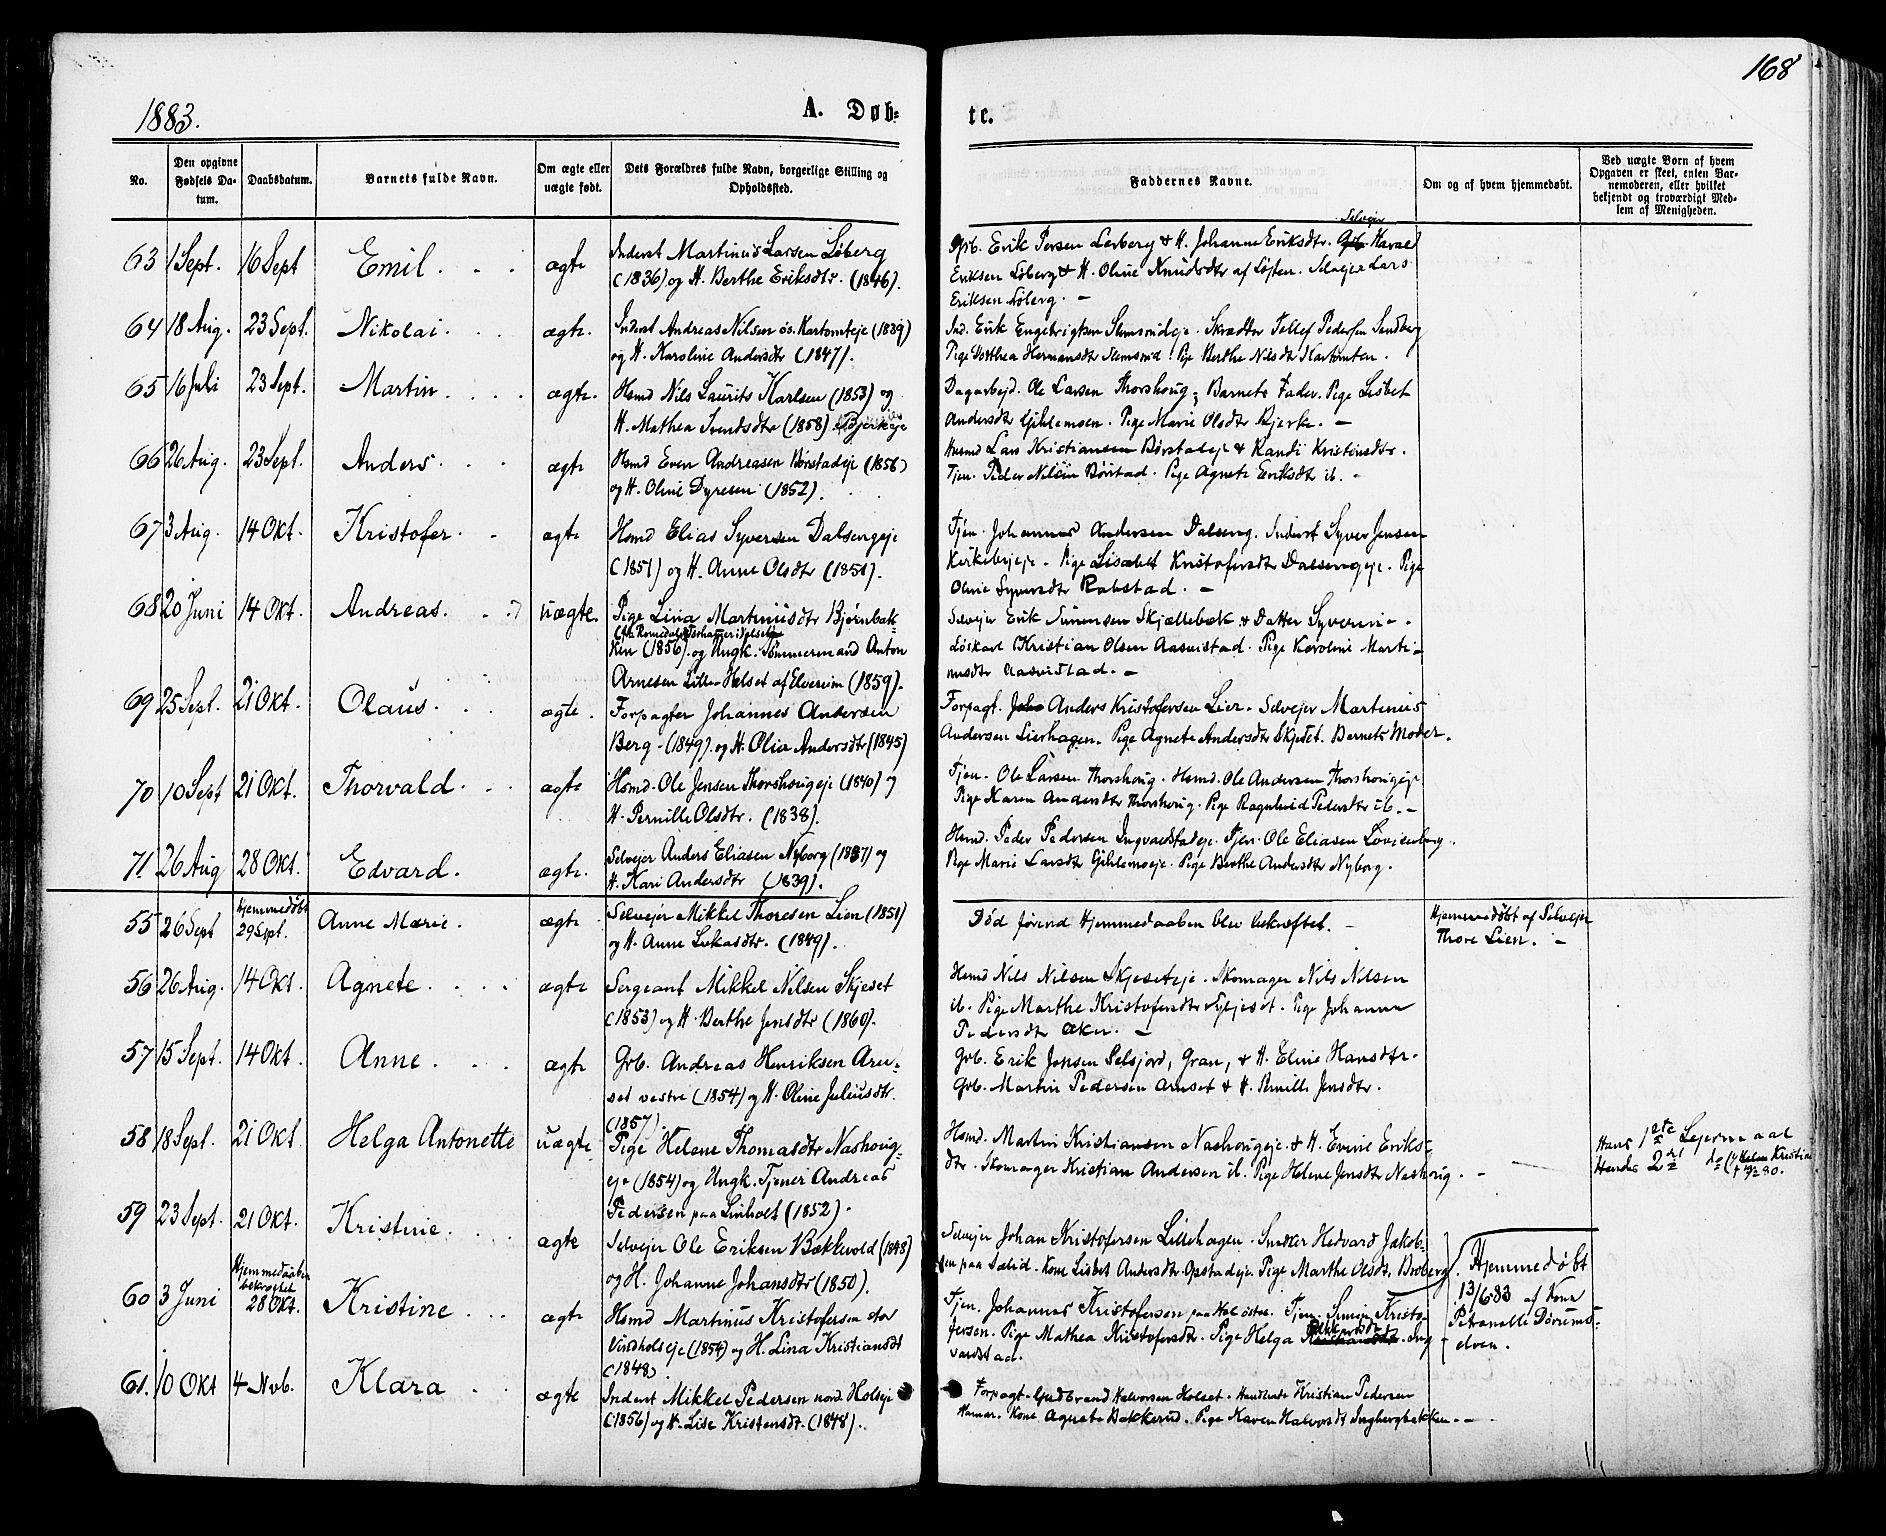 168
1883.
A. Døb=
te.
No.
Den opgivne Fødsels Da-tum.
Daabsdatum.
Barnets fulde Navn.
Om ægte eller uægte født.
Dets Forældres fulde Navn, borgerlige Stilling og Opholdssted.
Faddernes Navne.
Om og af hvem hjemmedøbt.
Ved uægte Børn af hvem Opgaven er skeet, enten Bar-nemoderen, eller hvilket bekjendt og troværdigt Med-lem af Menigheden.
63 1 Sept. 16 Sept Emil. ægte Inderst Martinus Larsen Løberg
(1836) og H. Berthe Eriksdtr. (1846).
Gbr. Erik Persen Løberg & H. Johanne Eriksdtr. Selveier Harald
Eriksen Løberg & H. Oline Knudsdtr af Løften. Selvejer Lars
Eriksen Løberg. —
64 18 Aug. 23 Sept. Nikolai. ægte. Inderst Andreas Nilsen øs. Kartomteje (1839)
og H. Karoline Andersdtr (1847).
Ind. Erik Engebrigtsen Slemsrudeje. Skrædder Tellef Pedersen Sandberg
Pige Dorthea Hermansdtr Slemsrud. Pige Berthe Nilsdtr Kartomten.
65 16 Juli 23 Sept. Martin. ægte. Hsmd Nils Laurits Karlsen (1853) og
H. Mathea Svendsdtr (1858). Bjerkeje
Dagarbejd. Ole Larsen Thorshoug; Barnets Fader. Pige Lisbet
Andersdtr Gihlemoen. Pige Marie Olsdtr Bjerke. —
66 26 Aug. 23 Sept. Anders. ægte Hsmd Even Andreasen Børstadeje (1856)
og H. Oline Dyresen (1852).
Husmd Lars Kristiansen Børstadeje & Randi Kristinsdtr.
Tjen. Peder Nilsen Børstad. Pige Agnete Eriksdtr ib. —
67 3 Aug. 14 Okt. Kristofer. ægte Hsmd Elias Syversen Dalsengeje
(1851) og H. Anne Olsdtr (1851).
Tjen. Johannes Andersen Dalseng. Inderst Syver Jensen
Kirkebyeje. Pige Lisabet Kristofersdtr Dalsengeje. Pige
Oline Syversdtr Rabstad. —
68 20 Juni 14 Okt. Andreas. uægte. Pige Lina Martinusdtr Bjørnbak-
ken (1856). og Ungk. Tømmermand Anton
Arnesen Lille-Helset af Elverum (1859).
Selvejer Erik Simensen Skjællebæk & Datter Syverine.
Løskarl Kristian Olsen Aasvistad. Pige Karoline Marti-
nusdtr Aasvistad. —
69 25 Sept. 21 Okt. Olaus. ægte. Forpagter Johannes Andersen
Berg (1849) og H. Olia Andersdtr (1845)
Forpagt. Anders Kristofersen Lier. Selvejer Martinius
Andersen Lierhagen. Pige Agnete Andersdtr Skjeset. Barnets Moder.
70 10 Sept 21 Okt. Thorvald. ægte Hsmd. Ole Jensen Thorshougeje (1840) og
H. Pernille Olsdtr. (1838).
Tjen. Ole Larsen Thorshoug. Hsmd. Ole Andersen Thorshougeje.
Pige Karen Andersdtr Thorshoug. Pige Ragnhild Pedersdtr ib. —
71 26 Aug 28 Okt. Edvard. ægte. Selvejer Anders Eliasen Nyborg (1837) og
H. Kari Andersdtr (1839).
Hsmd. Peder Pedersen Ingvaldstadeje. Tjen. Ole Eliasen Løvlienborg.
Pige Marie Larsdtr Gihlemoeje. Pige Berthe Andersdtr Nyborg.
55 26 Sept Hjemmedøbt 29 Sept. Anne Marie. ægte Selvejer Mikkel Thoresen Lien (1851)
og H. Anne Lukasdtr. (1849).
Død førend Hjemmedaaben blev bekræftet. —
Hjemmedøbt af Selvejer
Thore Lien. —
56 26 Aug. 14 Okt. Agnete. ægte Sergeant Mikkel Nilsen Skjeset
(1853) og H. Berthe Jensdtr (1860).
Hsmd Nils Nilsen Skjeseteje. Skomager Nils Nilsen
ib. Pige Marthe Kristofersdtr Skjeset. Pige Johanne
Pedersdtr Aker. —
57 15 Sept. 14 Okt. Anne. ægte Gbr. Andreas Henriksen Arne-
set vestre (1854) og H. Oline Juliusdtr.
(1857).
Gbr. Erik Jensen Selsjord, Gran, & H. Eline Hansdtr.
Gbr. Martin Pedersen Arnset & H. Pernille Jensdtr.
58 18 Sept. 21 Okt. Helga Antonette uægte Pige Helene Thomasdtr Nashoug-
eje (1854) og Ungk. Tjener Andreas
Pedersen paa Linholt (1852).
Hsmd. Martin Kristiansen Nashougeje. & H. Evine Eriks-
dtr. Skomager Kristian Andersen ib. Pige Helene Jensdtr Nashoug.
Hans 1ste Lejermaal
Hendes 2det do
59 23 Sept. 21 Okt. Kristine. ægte Selvejer Ole Eriksen Bækkevold (1848)
og H. Johanne Johansdtr (1850).
Selvejer Johan Kristofersen Lillehagen. Snedker Hedvard Jakob-
sen paa Sælid. Kone Lisbet Andersdtr Opstadeje. Pige Marthe Olsdtr. Broberg.
60 3 Juni Hjemmedaaben bekræftet 28 Okt. Kristine ægte Hsmd Martinus Kristofersen stor
Vindholseje (1854) og H. Lina Kristiansdt
(1848).
Tjen. Johannes Kristofersen paa Hol østre. Tjen. Simen Kristo-
fersen. Pige Mathea Kristofersdtr. Pige Helga Ing-
valdstad.
Hjemmedøbt
13/6 83 af Kone
Petronelle Dørums-
elven.
61. 10 Okt 4 Novb. Klara ægte Inderst Mikkel Pedersen nord. Holseje
(1856) og H. Lise Kristensdt. (1848).
Forpagt. Gudbrand Halvorsen Holset. Handlende Kristian Pedersen
Hamar. Kone Agnete Bakkerud. Pige Karen Halvorsdt Ingbergbakken. —